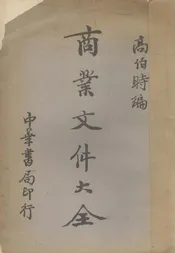 高伯時編
商業文件大全
中央書局印行